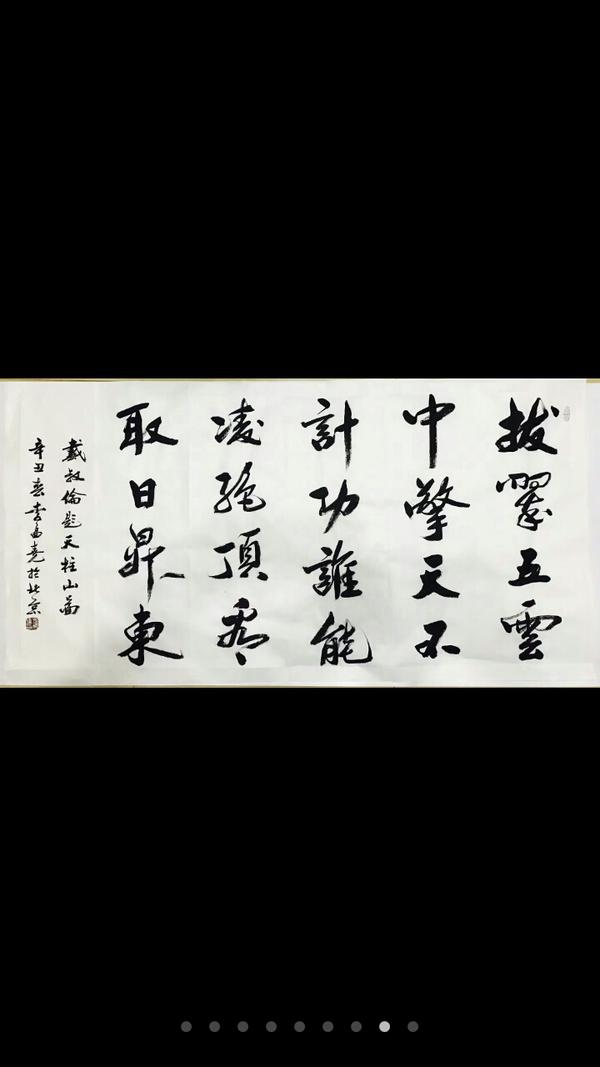 拔翠五雲
中擎天不
計功誰能
凌絕頂看
取日昇東
戴叔倫題天柱山圖
辛丑春李堯於北京